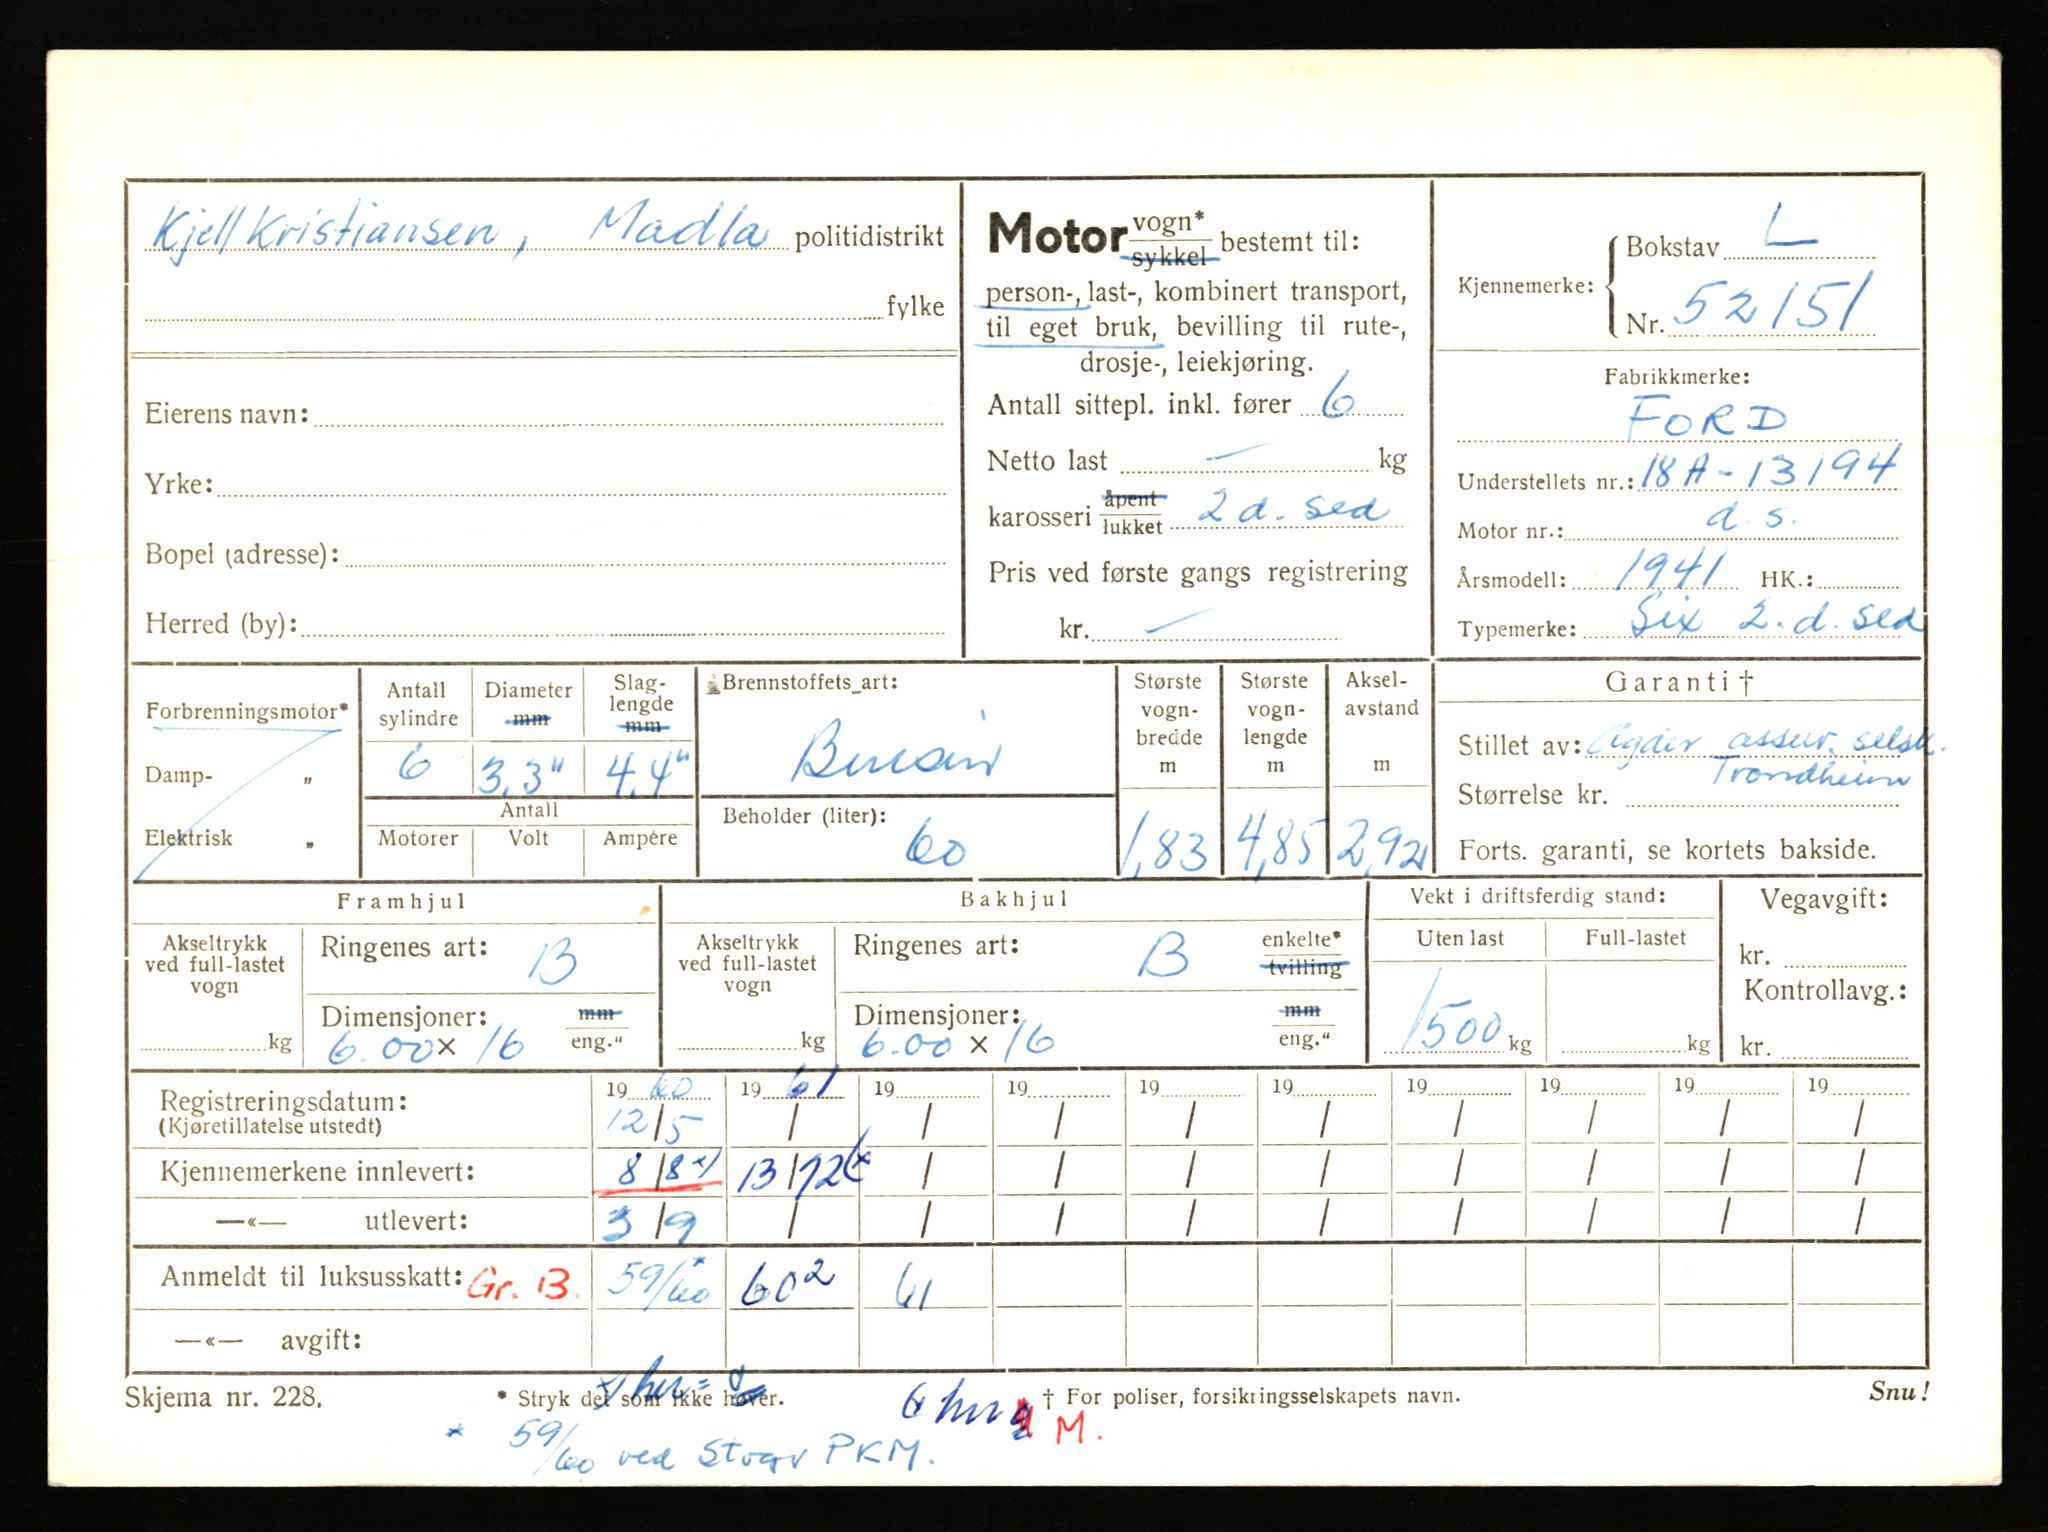 Kjell Kristiansen, Madla politidistrikt
fylke
Eierens navn:
Yrke:
Bopel (adresse):
Herred (by):
Motor vogn* sykkel bestemt til:
person-, last-, kombinert transport,
til eget bruk, bevilling til rute-,
drosje-, leiekjøring.
Antall sittepl. inkl. fører 6
Netto last — kg
karosseri åpent lukket 2 d. sed
Pris ved første gangs registrering
kr. —
Kjennemerke: Bokstav L
Nr. 52151
Fabrikkmerke:
FORD
Understellets nr.: 18A-13194
Motor nr.: d. s.
Årsmodell: 1941 HK.:
Typemerke: Six 2.d. sed
Forbrenningsmotor*
Damp- "
Elektrisk "
Antall sylindre
6
Diameter mm
3,3"
Slag-
lengde
mm
4,4"
Antall
Motorer Volt Ampére
Brennstoffets art:
Bensin
Beholder (liter):
60
Største
vogn-
bredde
m
1,83
Største
vogn-
lengde
m
4,85
Aksel-
avstand
m
2,92
Garanti †
Stillet av: Agder assur. selsk.
Trondheim
Størrelse kr.
Forts. garanti, se kortets bakside.
Framhjul
Akseltrykk
ved full-lastet
vogn
kg
Ringenes art: B
Dimensjoner: mm
6.00 x 16 eng."
Bakhjul
Akseltrykk
ved full-lastet
vogn
kg
Ringenes art: B enkelte*
tvilling
Dimensjoner: mm
6.00 x 16 eng."
Vekt i driftsferdig stand:
Uten last Full-lastet
1500 kg kg
Vegavgift:
kr.
Kontrollavg.:
kr.
1960 1961 19 19 19 19 19 19 19 19
Registreringsdatum: 12/5 / / / / / / / / /
(Kjøretillatelse utstedt)
Kjennemerkene innlevert: 8/8 x) 13/12 (x / / / / / / / /
—«— utlevert: 3/9 / / / / / / / / /
Anmeldt til luksusskatt: Gr. B. 59/60 * 60² 61
—«— avgift:
Skjema nr. 228.
* Stryk det som ikke høver.
† For poliser, forsikringsselskapets navn.
Snu!
M.
* 59/60 ved PKM.